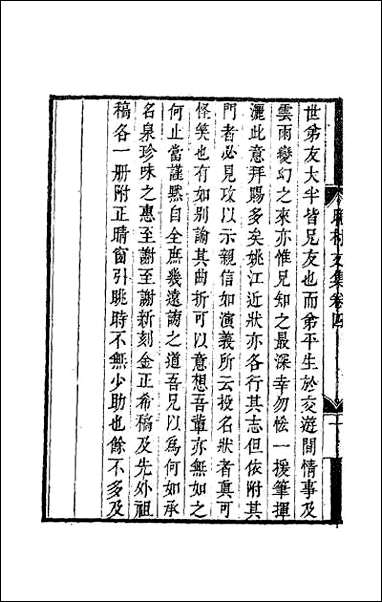 世弟友大半皆兄友也而弟平生於交遊間情事及
雲雨變幻之來亦惟兄知之最深幸勿恡一援筆揮
灑此意拜賜多矣姚江近狀亦各行其志但依附其
門者必見攻以示親信如演義所云投名狀者真可
怪笑也有如別諭其曲折可以意想吾輩亦無如之
何止當謹默自全庶幾遠謗之道吾兄以為何如承
名泉珍味之惠至謝至謝新刻金正希稿及先外祖
稿各一册附正晴窗引眺時不無少助也餘不多及
村文集卷四